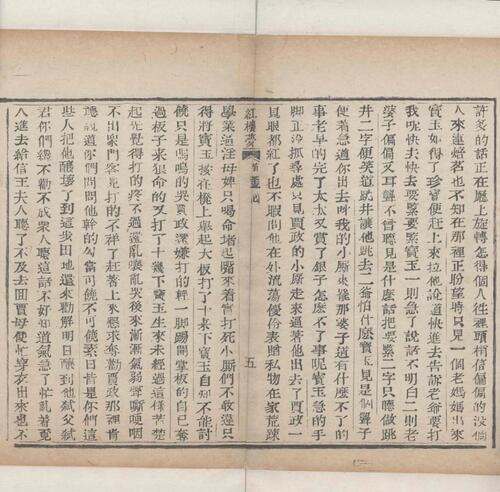 許多的話正在廳上旋轉怎得個人往裡頭梢信偏偏的沒個
人來連焙茗也不知在那裡正盼望時只見一個老媽媽出來
寶玉如得了珍寶便赶上來拉他說道快進去告訴老爺要打
我呢快去快去要緊要緊寶玉一則急了說話不明白二則老
婆子偏偏又耳聾不曾聽見是什麼話把要緊二字只聽做跳
井二字便笑道跳井讓他跳去二爺怕什麼寶玉見是個聾子
便着急道你出去叫我的小厮來罷那婆子道有什麼不了的
事老早的完了太太又賞了銀子怎麼不了事呢寶玉急的手
脚正沒抓尋處只見賈政的小厮走來逼著他出去了賈政一
見眼都紅了也不暇問他在外流蕩優伶表贈私物在家荒踈
紅樓夢 第 囘 五
學業逼淫母婢只喝命堵起嘴來着實打死小厮們不敢違只
得將寶玉按在櫈上舉起大板打了十來下寶玉自知不能討
饒只是嗚嗚的哭賈政還嫌打的輕一脚踢開掌板的自己奪
過板子來狠命的又打了十幾下寶玉生來未經過這樣苦楚
起先覺得打的疼不過還亂嚷亂哭後來漸漸氣弱聲嘶哽咽
不出衆門客見打的不祥了赶著上來懇求奪勸賈政那裡肯
聽說道你們問問他幹的勾當可饒不可饒素日皆是你們這
些人把他釀壞了到這步田地還來勸解明日釀到他弑父弑
君你們纔不勸不成衆人聽這話不好知道氣急了忙亂著覓
人進去給信王夫人聽了不及去囘賈母便忙穿衣出來也不